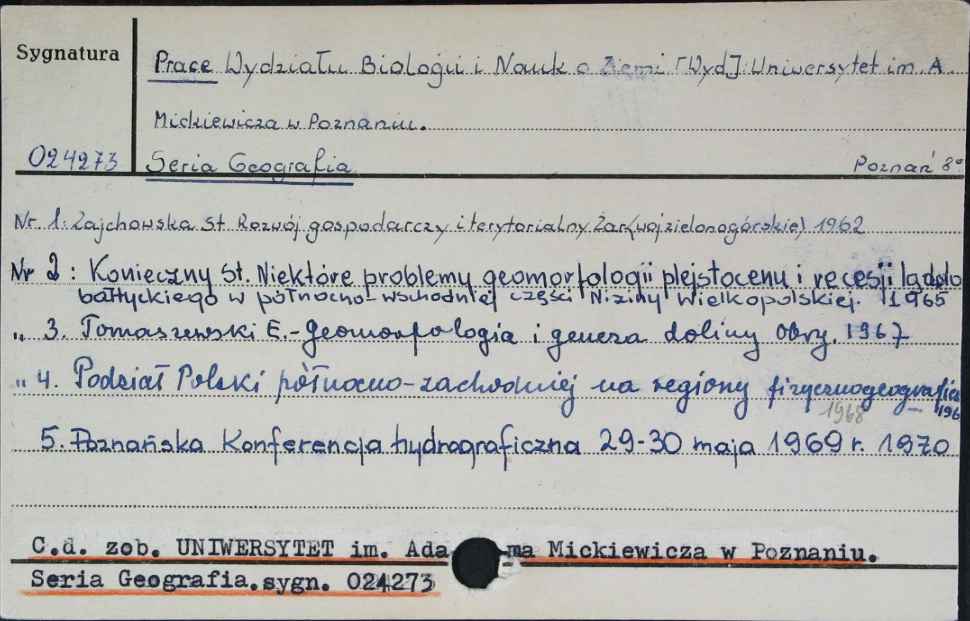 Sygnatura
Prace Wydziału Biologii i Nauk o Ziemi [Wyd] Uniwersytet im. A.
Mickiewicza w Poznaniu.
024273 Seria Geografia Poznań 8°
Nr. 1: Zajchowska St. Rozwój gospodarczy i terytorialny Żar (woj zielonogórskie) 1962
Nr 2 : Konieczny St. Niektóre problemy geomorfologii plejstocenu i recesji lądolo
bałtyckiego w północno-wschodniej części Niziny Wielkopolskiej. 1965
„ 3. Tomaszewski E.- Geomorfologia i geneza doliny Obry. 1967
„ 4. Podział Polski północno-zachodniej na regiony fizycznogeografi
1968 — 196
5. Poznańska Konferencja hydrograficzna 29-30 maja 1969 r. 1970
C.d. zob. UNIWERSYTET im. Ada ma Mickiewicza w Poznaniu.
Seria Geografia.sygn. 024273